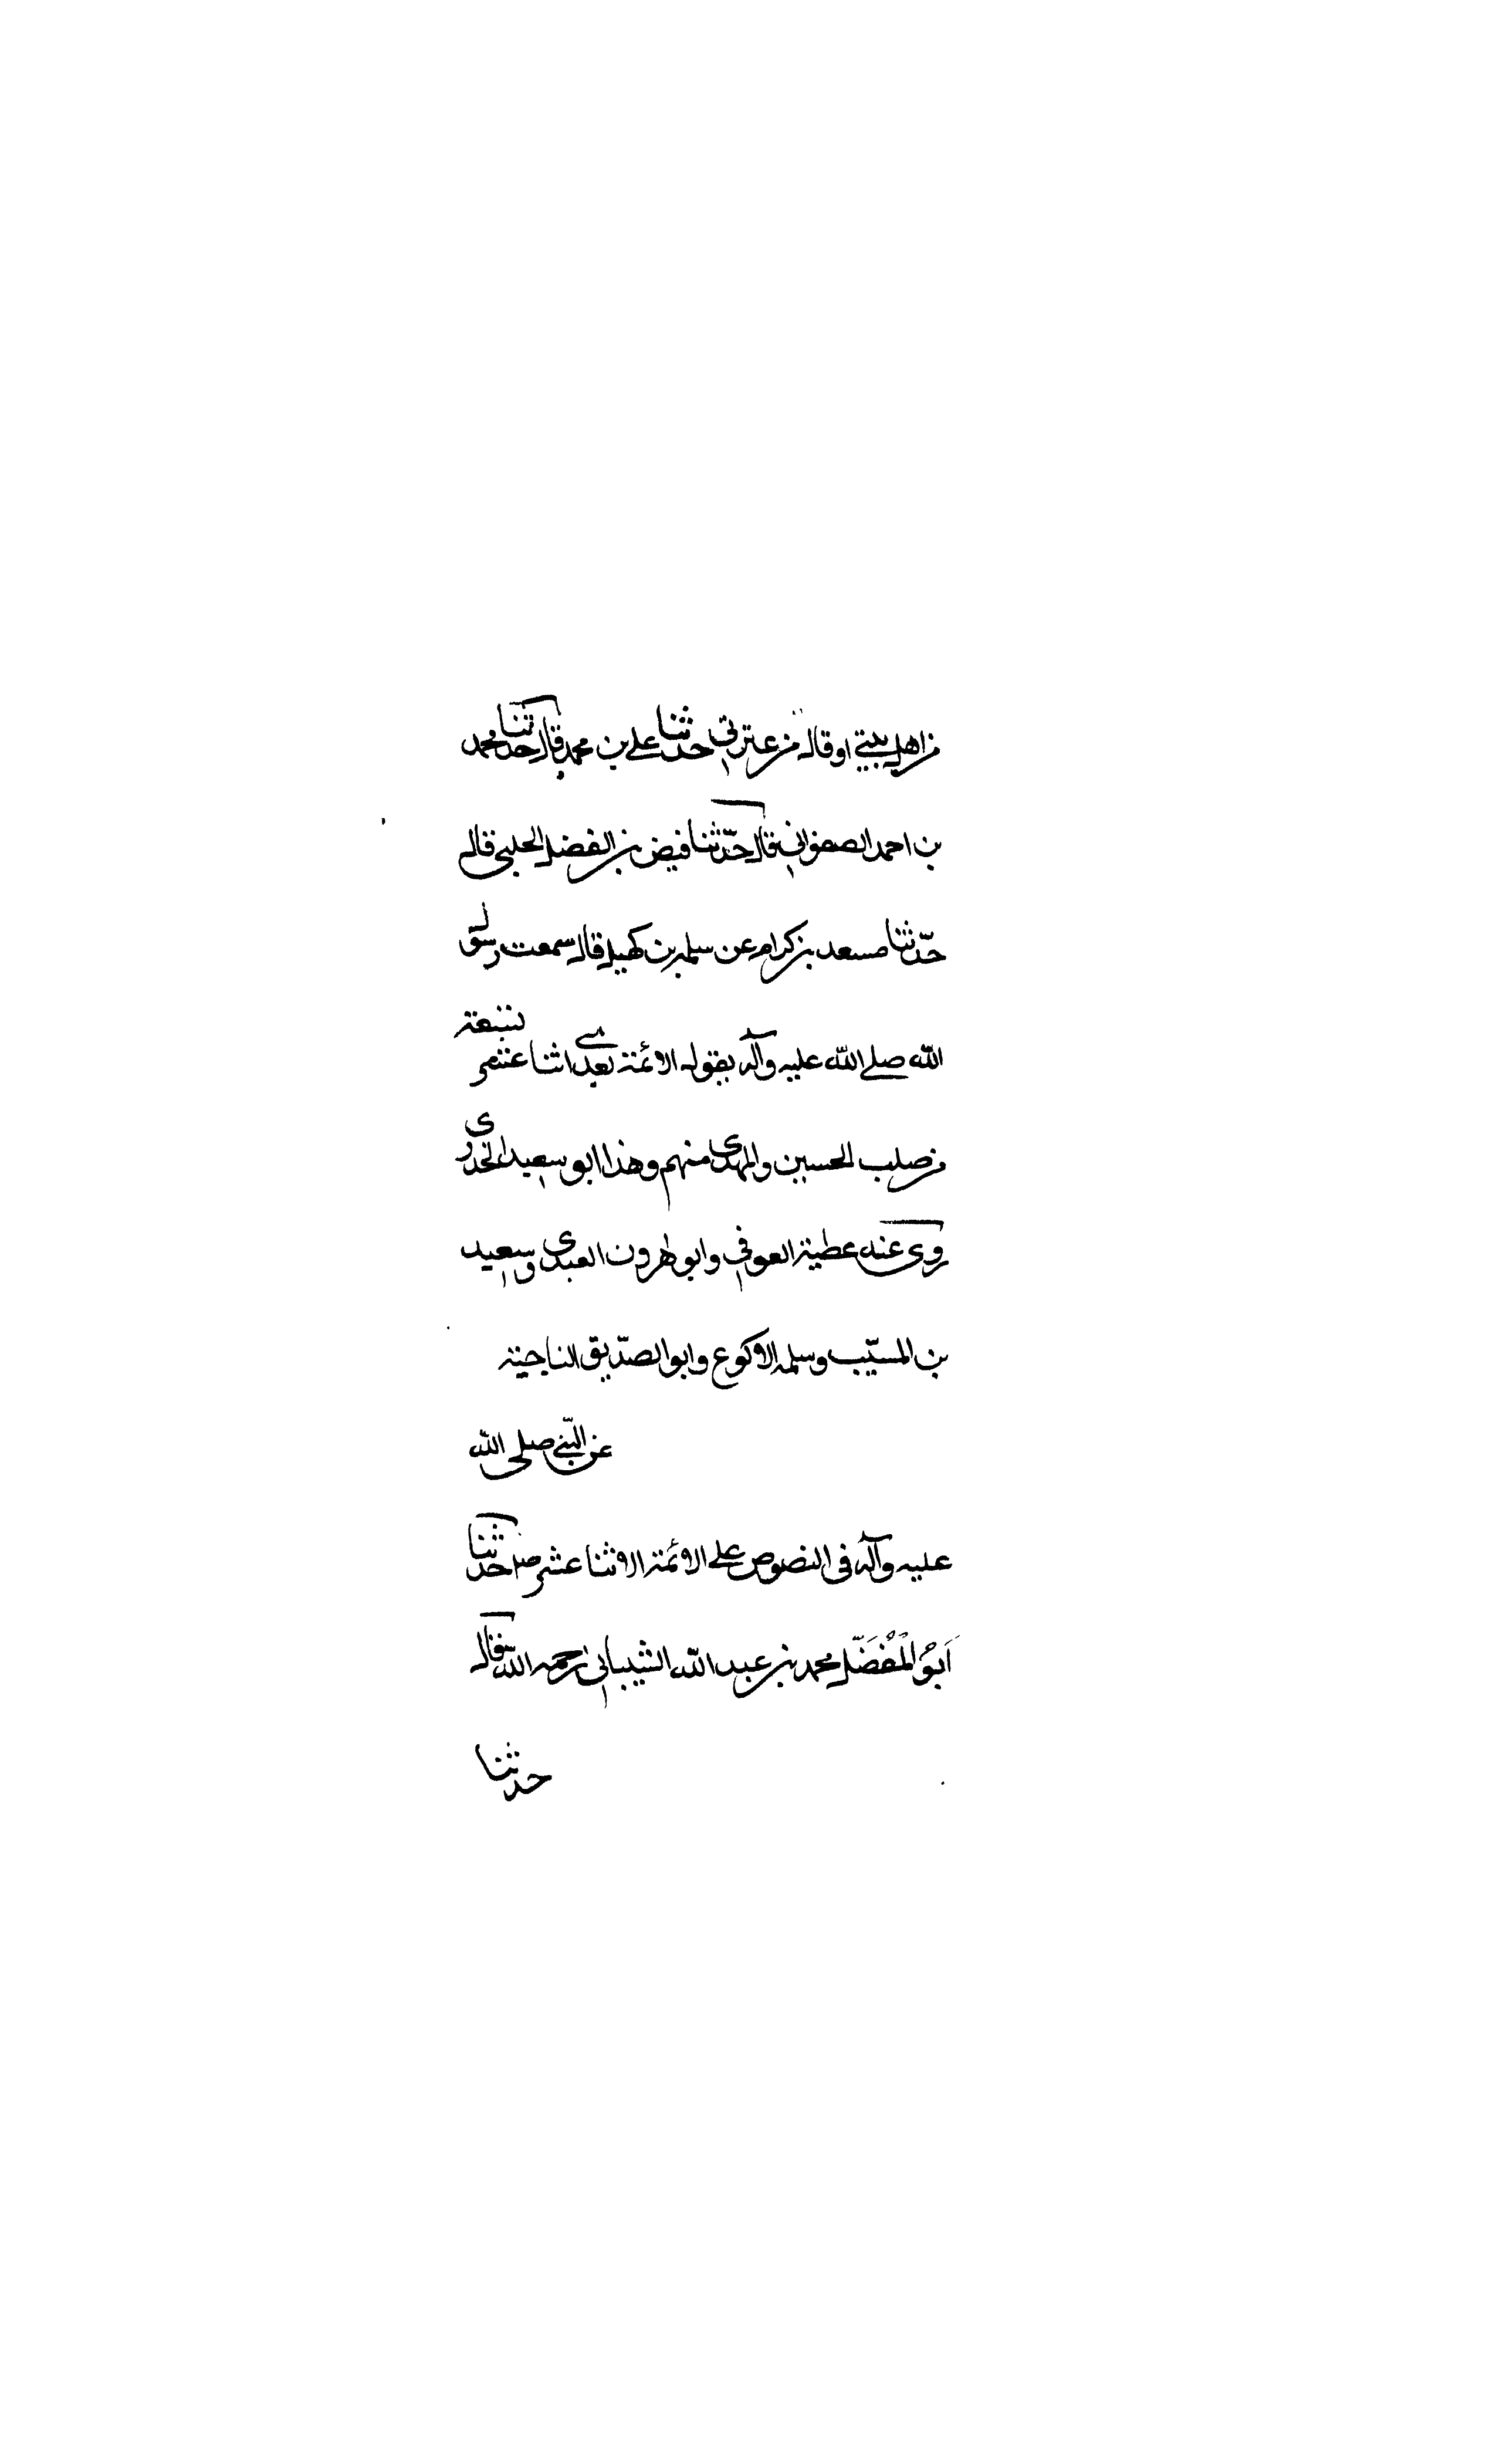 من اهل بيتي او قال من عترتي حدثنا علي بن محمد قال حدثنا محمد
بن احمد الصفواني قال حدّثنا فيض بن الفضل الحلبي قال
حدّثنا مسعد بن كرام عن سلمه بن كهيل قال سمعت رسول
الله صلى الله عليه وآله يقول الائمة بعدي اثنا عشر تسعة
من صلب الحسين والمهدى منهم وهذا ابو سعيد الخدرى
روى عنه عطية العوفي وابو هرون العبدى وسعيد
بن المسيّب وسلمه الاكوع وابو الصدّيق الناجية
عن النبي صلى الله
عليه وآله فى النصوص على الائمة الاثنا عشر حدثنا
اَبوُ الْمُفَضَّل محمد بن عبد الله الشيباني رحمه الله قال
حدثنا